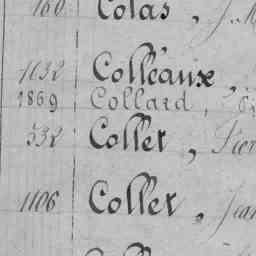 160 Colas, J. M
1132 Colléaux,
1869 Collard,
532 Collet, Pier
1106 Collet, Jean